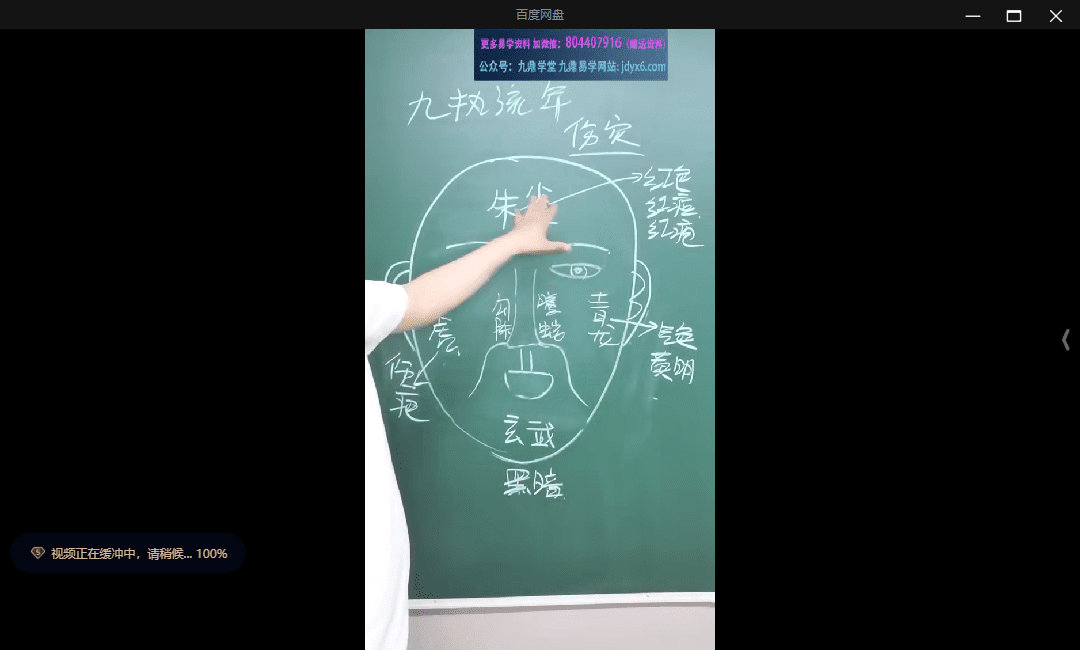 百度网盘
更多易学资料 加微信：804407916（赠送资料）
公众号：九鼎学堂 九鼎易学网站: jdyx6.com
九执流年
伤灾
朱雀
红色
红痘
红疤
勾陈
螣蛇
青龙
虎
气色
黄明
疤
玄武
黑暗
视频正在缓冲中，请稍候... 100%